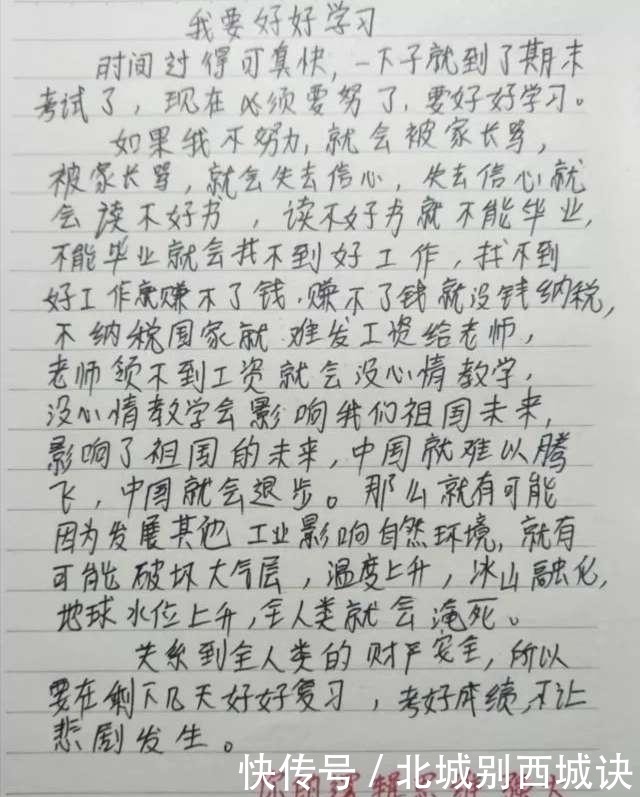 我要好好学习
时间过得可真快,一下子就到了期末
考试了,现在必须要努了,要好好学习。
如果我不努力,就会被家长骂,
被家长骂,就会失去信心,失去信心就
会读不好书,读不好书就不能毕业,
不能毕业就会找不到好工作,找不到
好工作就赚不了钱.赚不了钱就没钱纳税,
不纳税国家就难发工资给老师,
老师领不到工资就会没心情教学,
没心情教学会影响我们祖国未来,
影响了祖国的未来,中国就难以腾
飞,中国就会退步。那么就有可能
因为发展其他工业影响自然环境,就有
可能破坏大气层,温度上升,冰山融化,
地球水位上升,全人类就会淹死。
关系到全人类的财产安全,所以
要在剩下几天好好复习,考好成绩,不让
悲剧发生。
快传号/北城别西城诀
你的逻辑思维